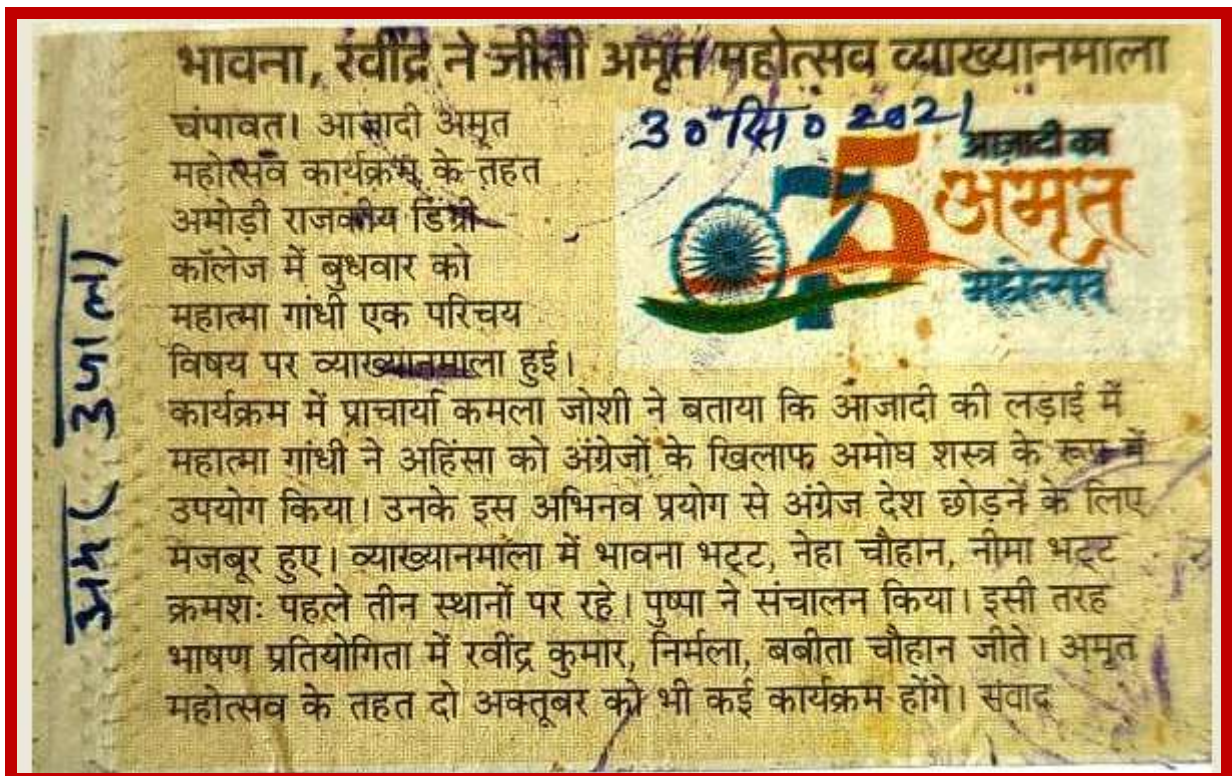 भावना, रवींद्र ने जीती अमृत महोत्सव व्याख्यानमाला
30 सि0 2021
चंपावत। आजादी अमृत
महोत्सव कार्यक्रम के तहत
अमोड़ी राजकीय डिग्री
कॉलेज में बुधवार को
महात्मा गांधी एक परिचय
विषय पर व्याख्यानमाला हुई।
75
आज़ादी का
अमृत
महोत्सव
कार्यक्रम में प्राचार्या कमला जोशी ने बताया कि आजादी की लड़ाई में
महात्मा गांधी ने अहिंसा को अंग्रेजों के खिलाफ अमोघ शस्त्र के रूप में
उपयोग किया। उनके इस अभिनव प्रयोग से अंग्रेज देश छोड़ने के लिए
मजबूर हुए। व्याख्यानमाला में भावना भट्ट, नेहा चौहान, नीमा भट्ट
क्रमशः पहले तीन स्थानों पर रहे। पुष्पा ने संचालन किया। इसी तरह
भाषण प्रतियोगिता में रवींद्र कुमार, निर्मला, बबीता चौहान जीते। अमृत
महोत्सव के तहत दो अक्तूबर को भी कई कार्यक्रम होंगे। संवाद
अमर उजाला